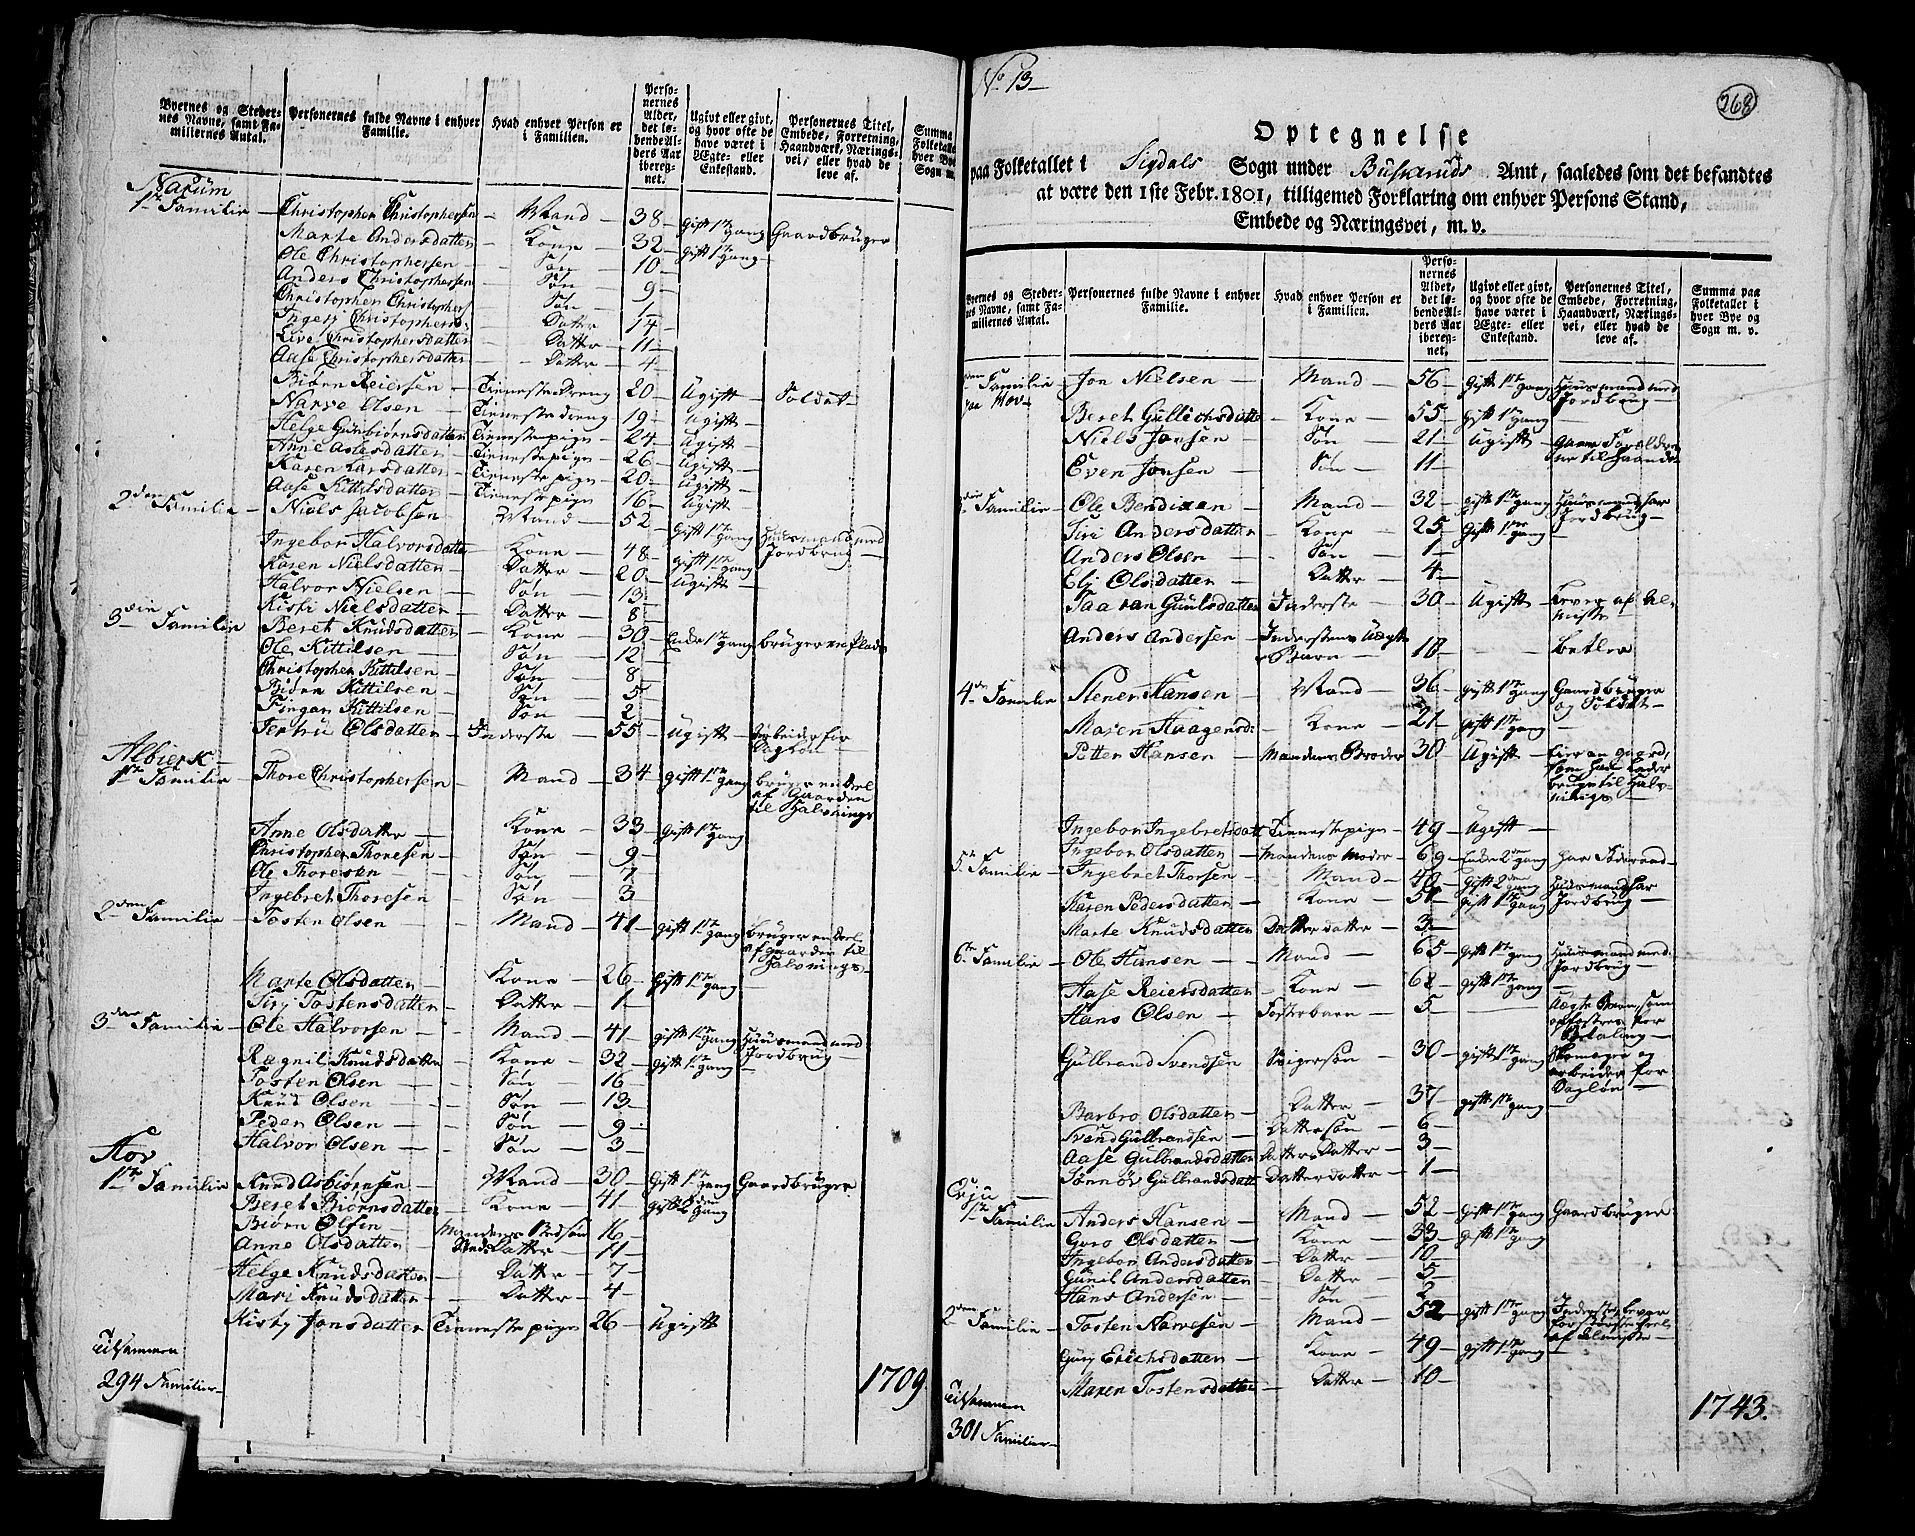 Byernes og Steder-
nes Navne, samt Fa-
miliernes Antal.
Personernes fulde Navne i enhver
Familie.
Hvad enhver Person er
i Familien.
Perso-
nernes
Alder,
det lø-
bende Al-
ders Aar
iberegnet.
Ugivt eller givt,
og hvor ofte de
have været i
Ægte- eller
Enkestand.
Personernes Titel,
Embede, Forretning,
Haandværk, Nærings-
vei, eller hvad de
leve af.
Summa
Folketalle
hver By
Sogn m.
Narum
1te Familie – Christopher Christophersen – Mand – 38 – gift 1te gang Gaardbruger
Marte Andersdatter – Kone – 32 – gift 1te gang –
Ole Christophersen – Søn – 10 –
Anders Christophersen Søn – 9 –
Christopher Christophers Søn – 1 –
Ingerj Christophersd: Datter – 14 –
Live Christophersdatter – Datter – 11 –
Aase Christophersdatter – Datter – 4 –
Biørn Reiersen – Tienneste Dreng 20 – Ugift – Soldat –
Narve Olsen – Tienneste dreng – 19 – Ugift –
Helge Gunbiørnsdatter Tienneste pige – 24 – Ugift –
Anne Aslesdatter – Tienneste pige – 26 – Ugift –
Karen Larsdatter – Tienneste pige – 20 – Ugift –
Aase Kittilsdatter – Tienneste pige – 16 – Ugift –
2den Familie – Niels Jacobsen – Mand – 52 – gift 1te gang Huusmand med Jordbrug –
Ingebor Halvorsdatter – Kone – 48 – gift 1te gang –
Karen Nielsdatter – Datter – 20 – Ugift
Halvor Nielsen – Søn – 13 –
Kisti Nielsdatter – Datter – 8 –
3die Familie – Beret Knudsdatter – Kone – 30 – Enke 1te gang bruger en Plads
Ole Kittilsen – Søn – 12 –
Christopher Kittilsen – Søn – 8 –
Biørn Kittilsen – Søn – 5 –
Fingar Kittilsen – Søn – 2 –
Jertru Olsdatter – Inderste – 55 – Ugift – Arbeider for Dagløn –
Albierk –
1te Familie – Thore Christophersen – Mand – 34 – gift 1te gang bruger en Deel af Gaarden til Halvnings
Anne Olsdatter – Kone – 33 – gift 1te gang
Christopher Thoresen – Søn – 9 –
Ole Thoresen – Søn – 7 –
Ingebret Thoresen – Søn – 3
2den Familie – Tosten Olsen – Mand – 41 – gift 1te gang bruger en Deel af gaarden til Halvnings –
Marte Olsdatter – Kone – 26 – Gift 1te gang –
Sirj Tostensdatter – Datter – 1 –
3die Familie – Ole Halvorsen – Mand – 41 – gift 1te gang Huusmand med Jordbrug –
Ragnil Knudsdatter – Kone – 32 – gift 1te gang –
Tosten Olsen – Søn – 16 –
Knud Olsen – Søn – 13 –
Peder Olsen – Søn – 9 –
Halvor Olsen – Søn – 3
Hov
1te Familie Knud Asbiørnsen – Mand – 30 – Gift 1te gang Gaardbruger
Beret Biørnsdatter – Kone – 41 – gift 2den gang
Biørn Olsen – Mandens Stedsøn 16 –
Anne Olsdatter – Stedsdatter – 11 –
Helge Knudsdatter – Datter – 7 –
Mari Knudsdatter – Datter – 4 –
Kisty Jonsdatter Tienneste pige – 26 – Ugift
Tilsammen
294 Familier – 1709.
No 13 –
268
Optegnelse
paa Folketallet i Sigdals Sogn under Buskeruds Amt, saaledes som det befandtes
at være den 1ste Febr. 1801, tilligemed Forklaring om enhver Persons Stand,
Embede og Næringsvei, m. v.
Byernes og Steder-
nes Navne, samt Fa-
miliernes Antal.
Personernes fulde Navne i enhver
Familie.
Hvad enhver Person er
i Familien.
Perso-
nernes
Alder,
det lø-
bende Al-
ders Aar
iberegnet.
Ugivt eller givt,
og hvor ofte de
have været i
Ægte- eller
Enkestand.
Personernes Titel,
Embede, Forretning,
Haandværk, Nærings-
vei, eller hvad de
leve af.
Summa paa
Folketallet i
hver Bye og
Sogn m. v.
den Familie – Jon Nielsen – Mand – 56 – gift 1te gang Huusmand med
paa Hov – Jordbrug –
Beret Gullichsdatter – Kone – 55 – gift 1te gang –
Niels Jonsen – Søn – 21 – Ugift – gaar Forældrene til Haande
Even Jonsen – Søn – 11 –
die Familie – Ole Bendixen – Mand – 32 – gift 1te gang Huusmand har Jordbrug –
Siri Andersdatter – Kone – 25 – gift 1te gang –
Anders Olsen – Søn – 1 –
Elj Olsdatter – Datter – 4 –
Taaran Guulsdatter – Inderste – 30 – Ugift – Lever af Almisse –
Anders Andersen – Inderstens Uægte Barn – 10 – – Betler
4de Familie – Stener Hansen – Mand – 36 – gift 1te gang Gaardbruger og Soldat –
Maren Haagensd: – Kone – 21 – gift 1te gang –
Petter Hansen – Mandens Broder 30 – Ugift –
Ingebor Ingebretsdatt Tiennestepige – 49 – Ugift –
Ingebor Olsdatter – Mandens Moder – 69 – Enke 2den gang har Føderaad –
5te Familie – Ingebret Thorsen – Mand – 40 – Gift 2den gang Huusmand har Jordbrug –
Karen Pedersdatter – Kone – 51 – gift 1te gang
Marte Knudsdatter – Datter datter – 3 –
6te Familie – Ole Hansen – Mand – 65 – gift 1te gang Huusmand med Jordbrug –
Aase Reiersdatter – Kone – 62 – gift 1te gang –
Hans Olsen – Fosterbarn – 5 – – Uægte Barn, som opfostres for Betaling –
Gulbrand Svendsen – Svigersøn – 30 – gift 1te gang Skomager og arbeider for Dagløn –
Barbro Olsdatter – Datter – 37 – gift 1te gang –
Svend Gulbrandsen – Dattersøn – 6 –
Aase Gulbrandsdatter – Datters Datter – 3 –
Jønnøv Gulbrandsdatt Datterdatter – 1 –
Eriu –
1te Familie – Anders Hansen – Mand – 52 – gift 1te gang Gaardbruger
Goro Olsdatter – Kone – 33 – gift 1te gang
Ingebor Andersdatter – Datter – 10 –
Gunil Andersdatter – Datter – 5 –
Hans Andersen – Søn – 2 –
2den Familie – Tosten Narvesen – Mand – 52 – gift 1te gang Inderste, lever for største Deel af Almisse –
Gurj Erichsdatter – Kone – 49 – gift 1te gang –
Maren Tostensdatter – Datter – 10 –
Tilsammen
301 Familier – 1743.